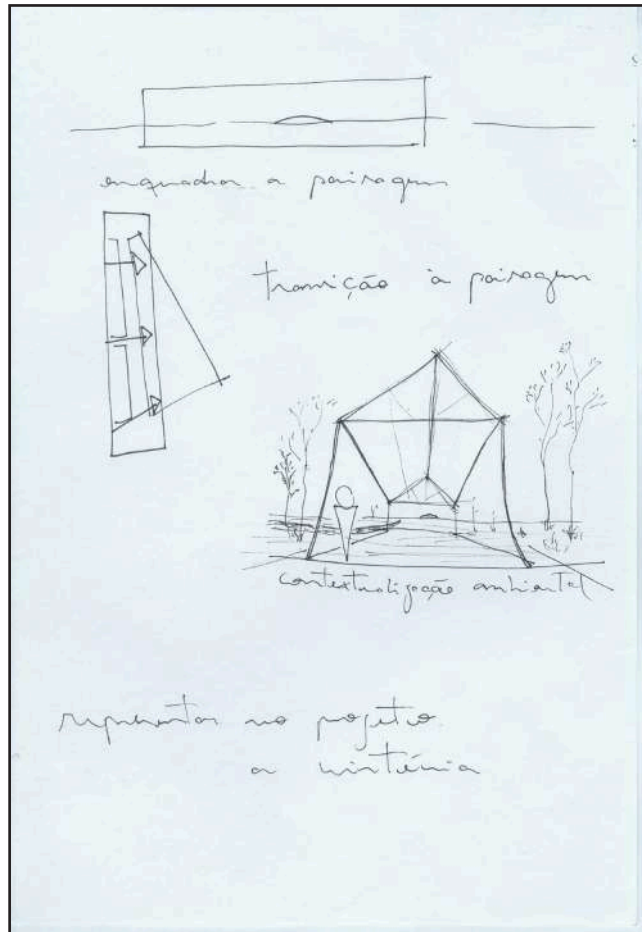 enquadrar a paisagem
transição à paisagem
contextualização ambiental
representar no projeto
a